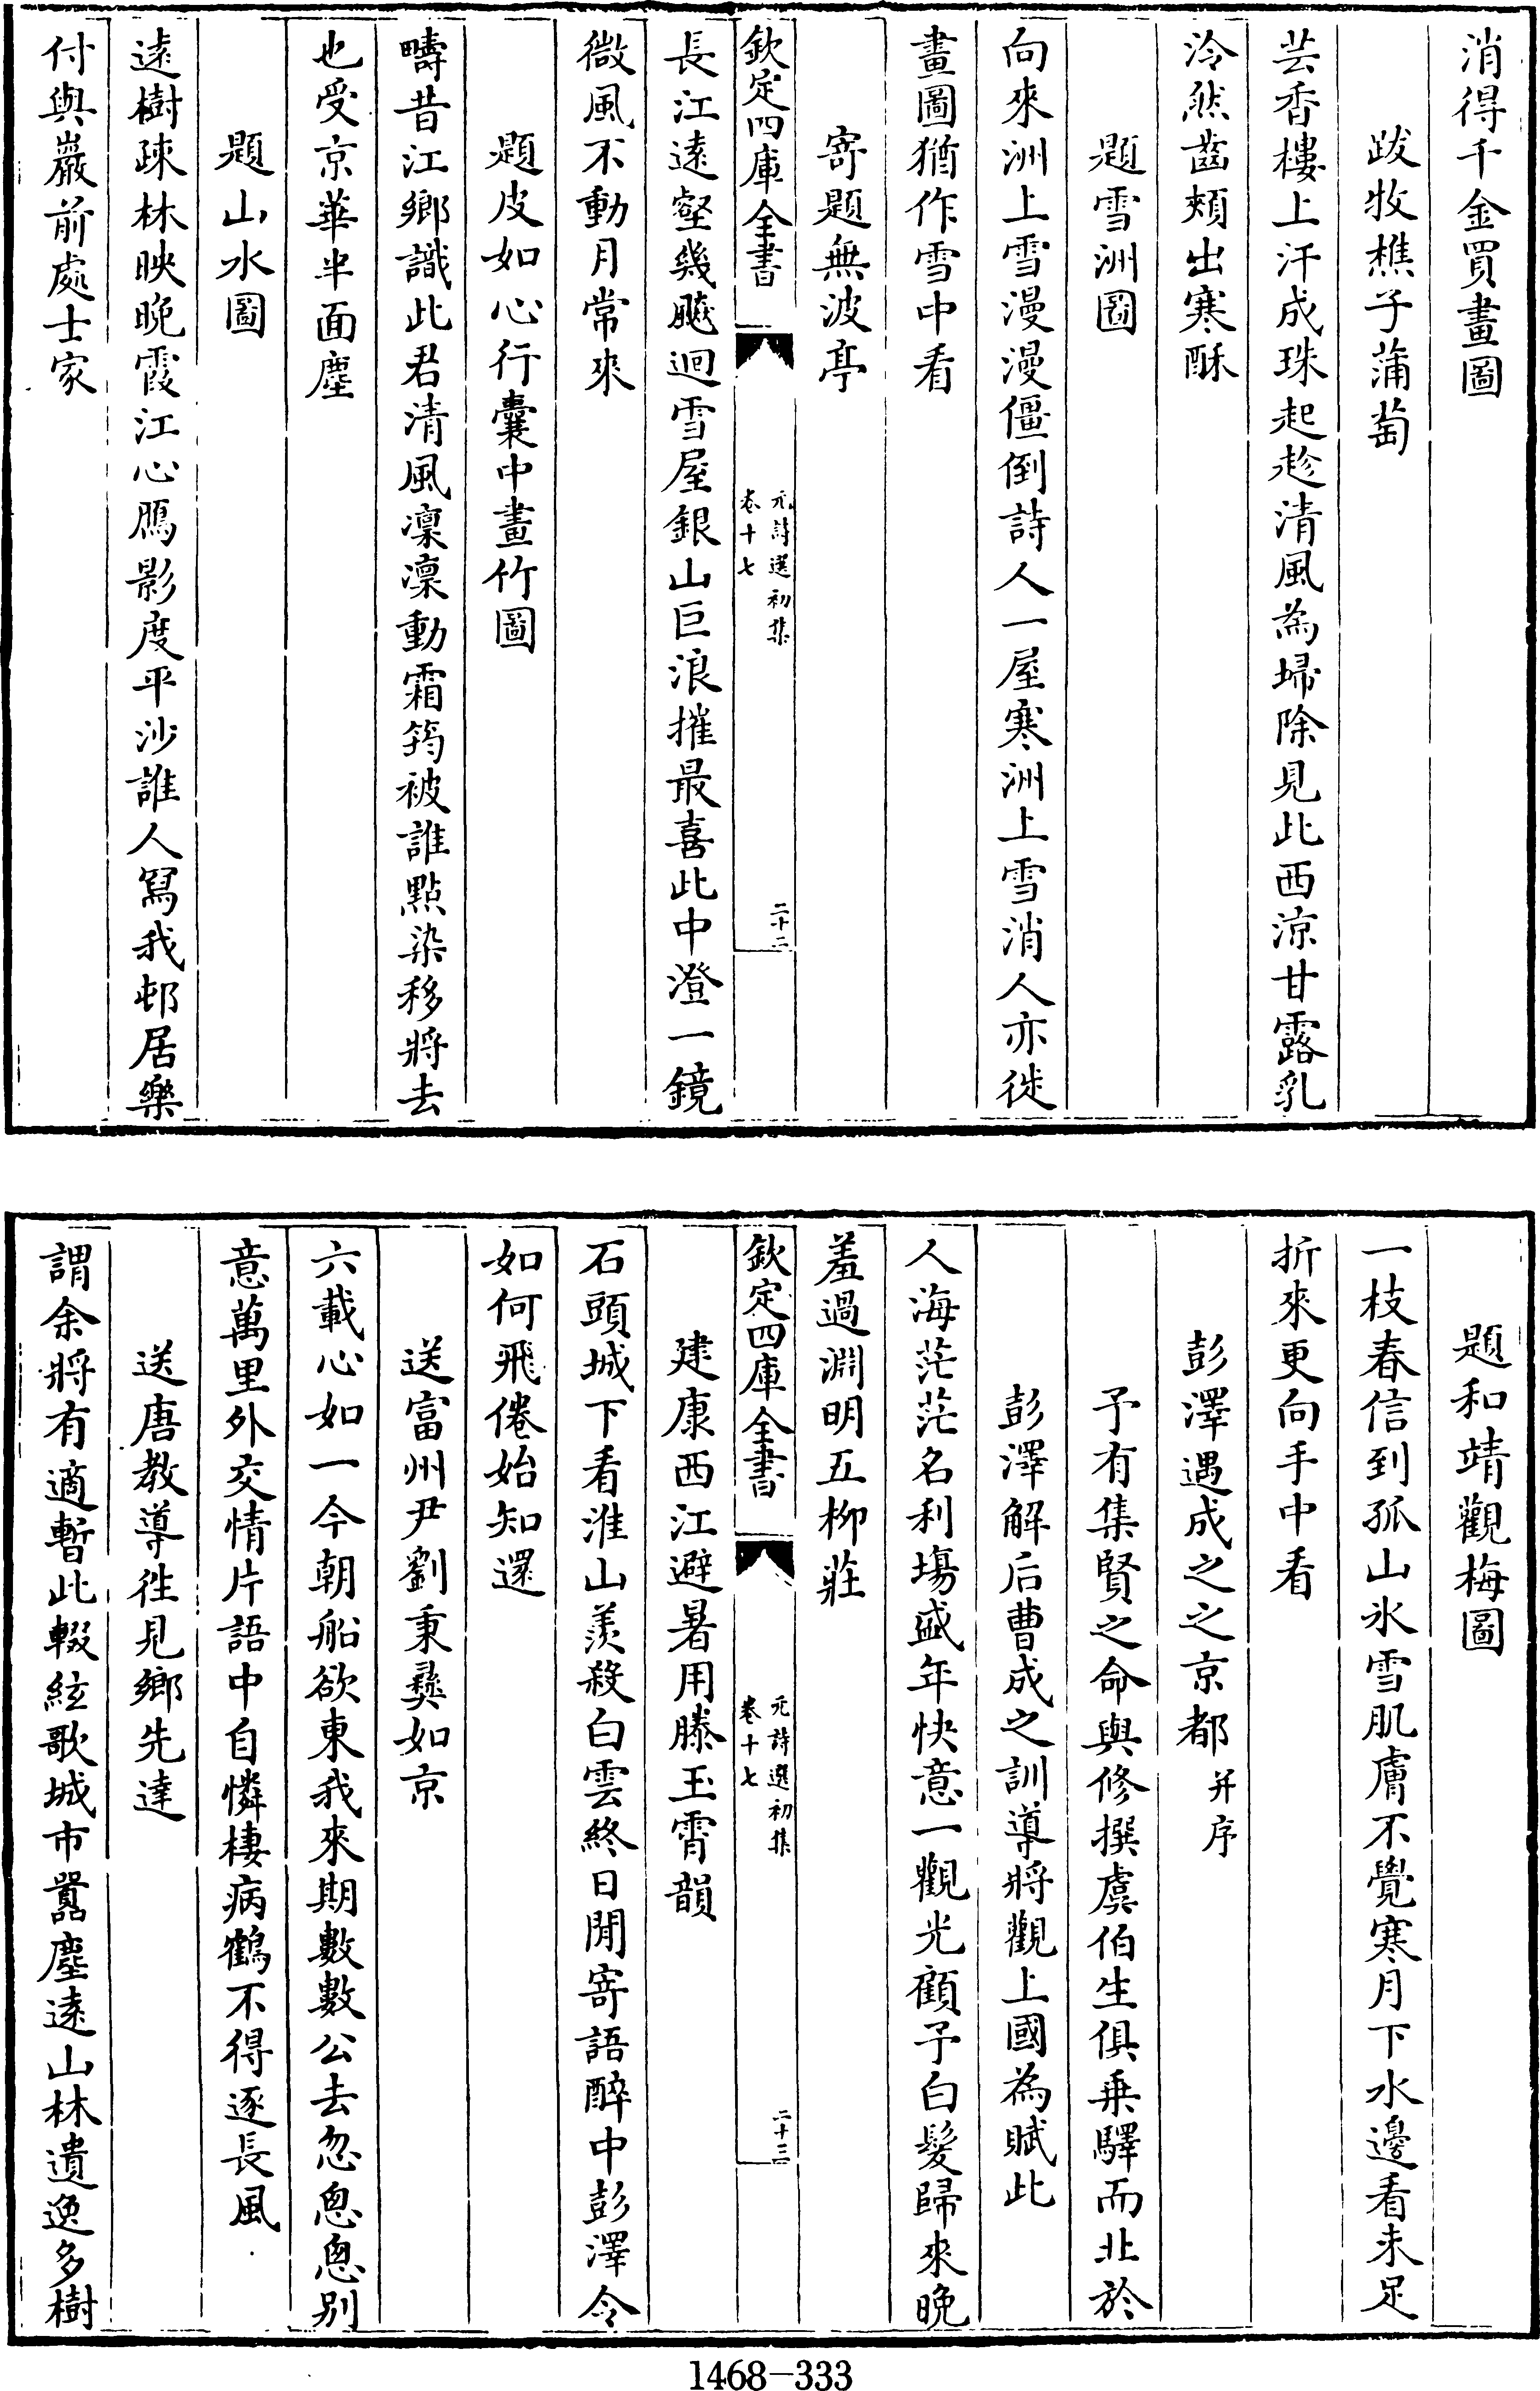 消得千金買畫圖
跋牧樵子蒲萄
芸香樓上汗成珠起趁清風為埽除見此西涼甘露乳
泠然齒頰出寒酥
題雪洲圖
向來洲上雪漫漫僵倒詩人一屋寒洲上雪消人亦徙
畫圖猶作雪中看
寄題無波亭
欽定四庫全書
元詩選初集
卷十七
二十二
長江遠壑幾飈迴雪屋銀山巨浪摧最喜此中澄一鏡
微風不動月常來
題皮如心行囊中畫竹圖
疇昔江鄉識此君清風凜凜動霜筠被誰點染移將去
也受京華半面塵
題山水圖
遠樹疎林映晚霞江心鴈影度平沙誰人寫我邨居樂
付與巖前處士家
題和靖觀梅圖
一枝春信到孤山氷雪肌膚不覺寒月下水邊看未足
折來更向手中看
彭澤遇成之之京都并序
予有集賢之命與修撰虞伯生俱乗驛而北於
彭澤解后曹成之訓導將觀上國為賦此
人海茫茫名利塲盛年快意一觀光顧予白髮歸來晚
羞過淵明五栁莊
欽定四庫全書
元詩選初集
卷十七
二十三
建康西江避暑用滕玉霄韻
石頭城下看淮山羨殺白雲終日閒寄語醉中彭澤令
如何飛倦始知還
送富州尹劉秉彞如京
六載心如一今朝船欲東我來期數數公去忽悤悤别
意萬里外交情片語中自憐棲病鶴不得逐長風
送唐教導徃見鄉先達
謂余將有適暫此輟絃歌城市囂塵遠山林遺逸多樹
1468-333